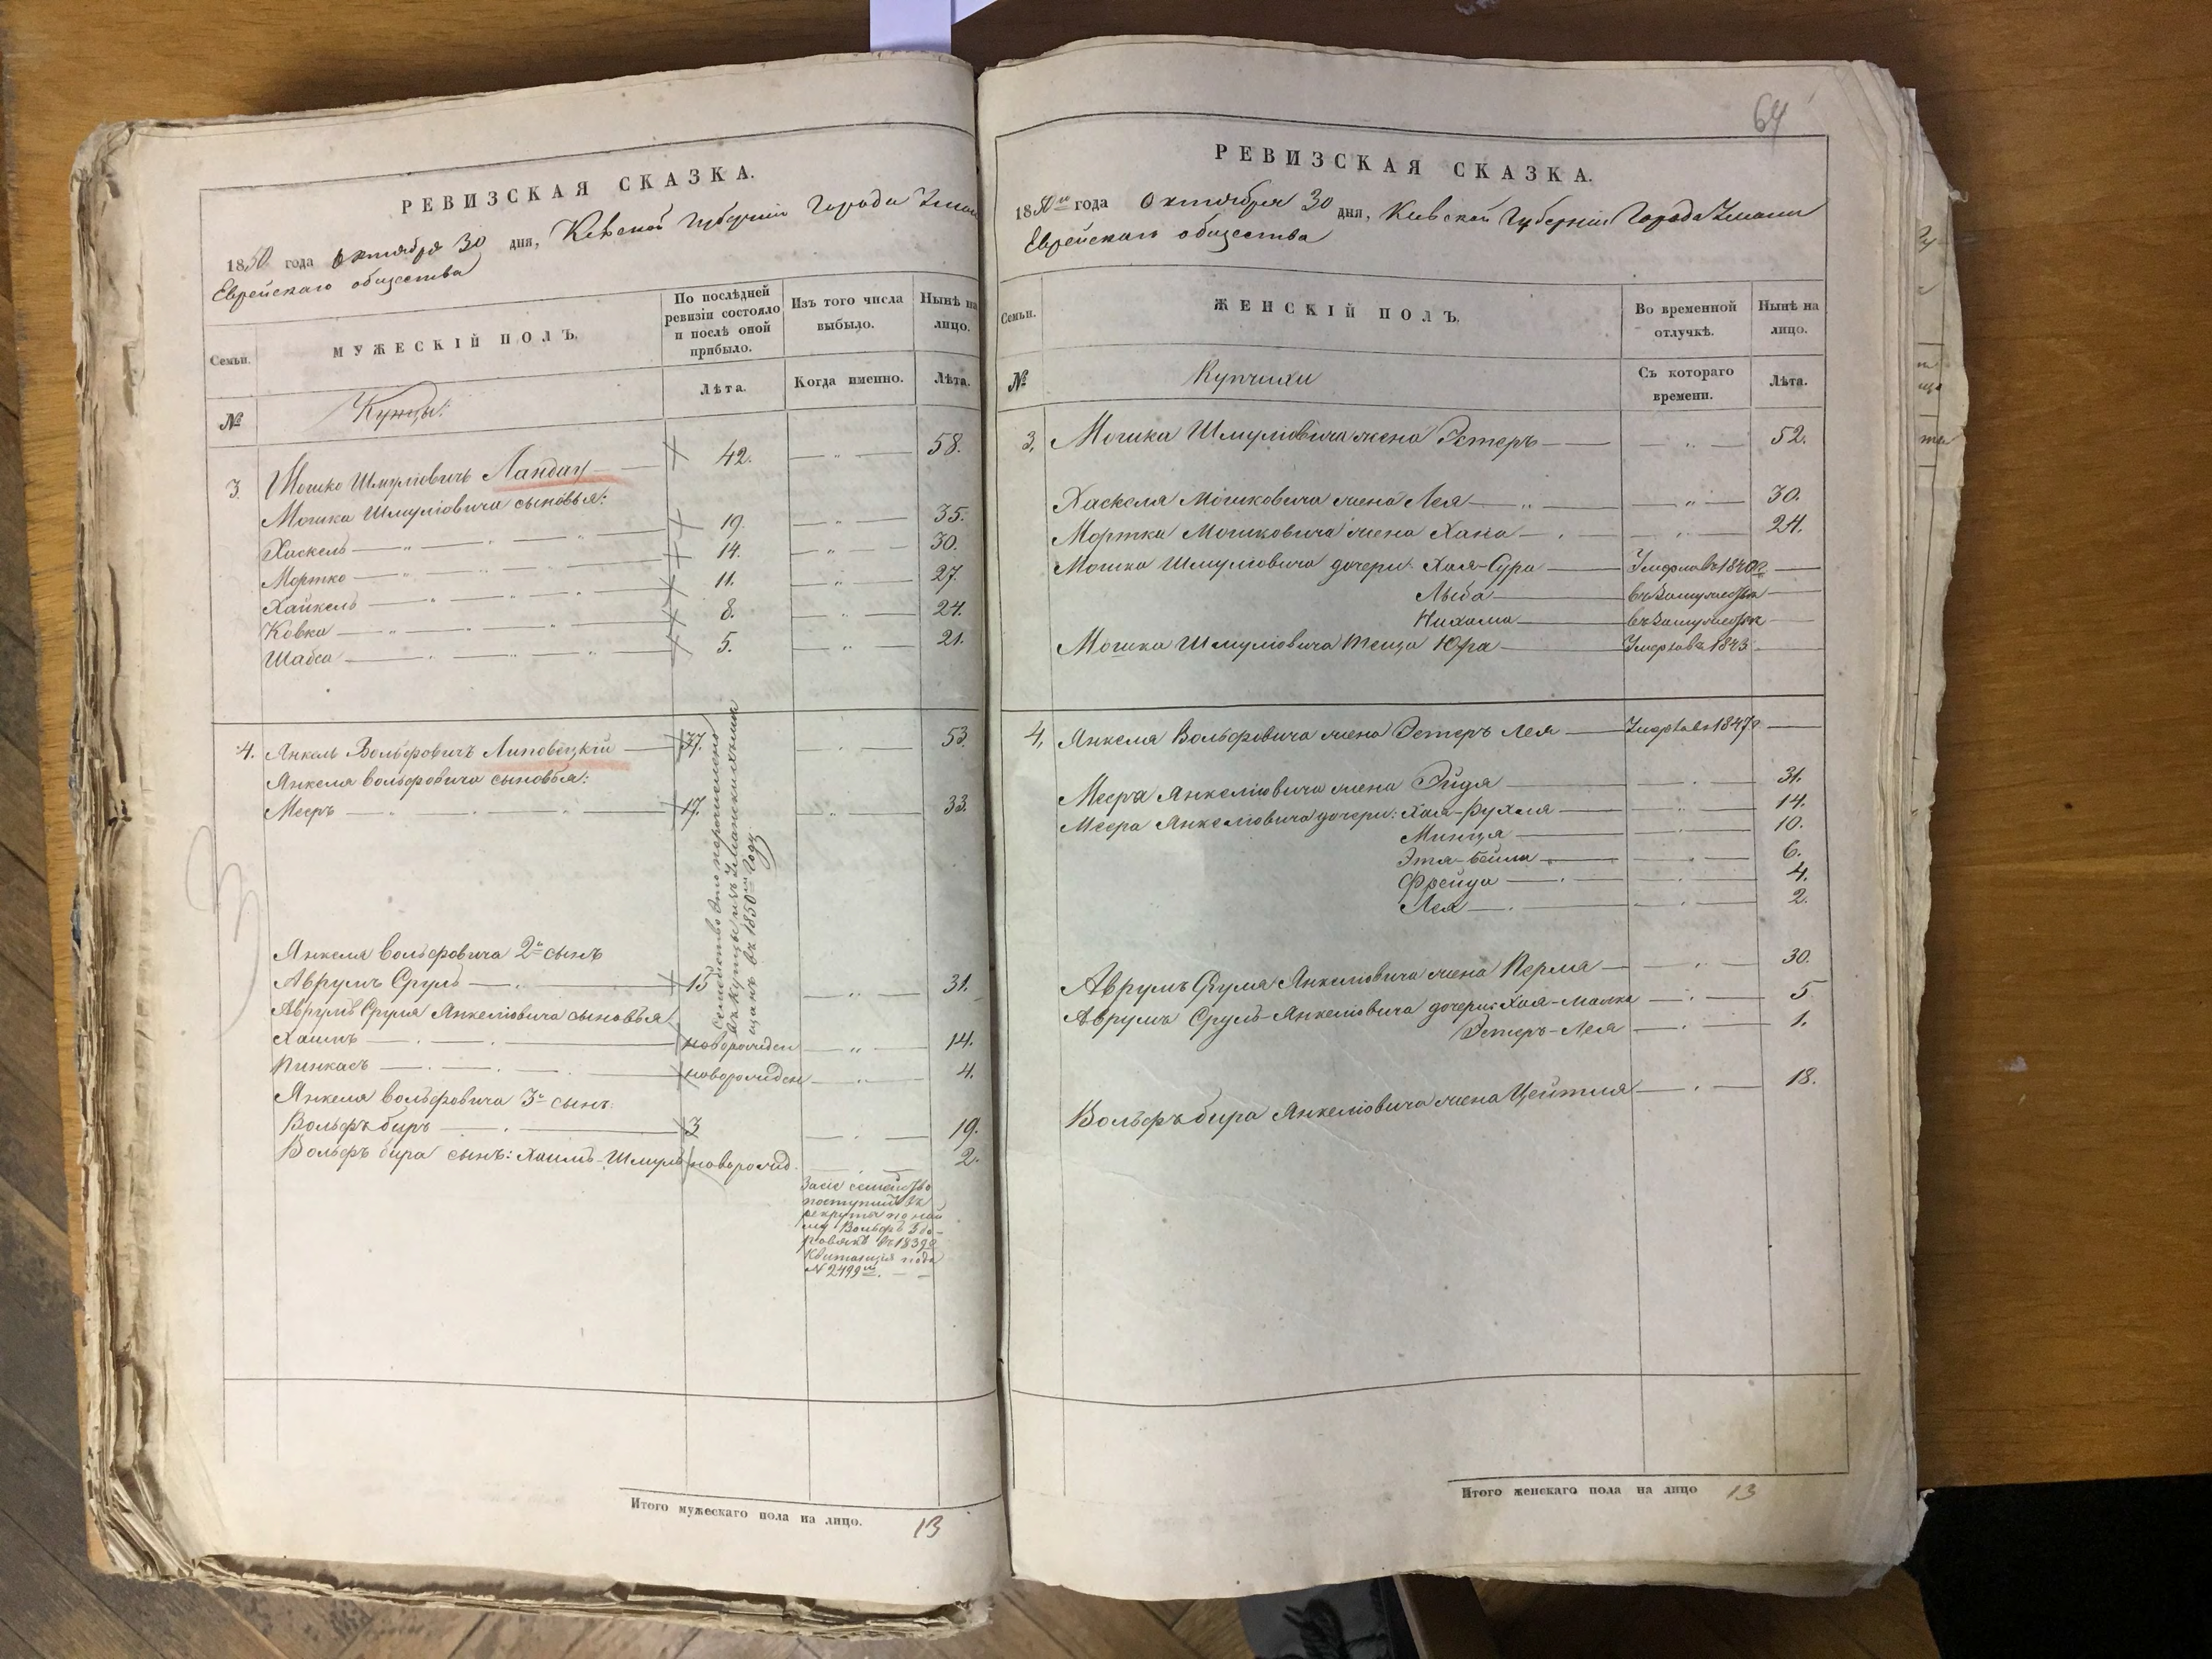 РЕВИЗСКАЯ СКАЗКА.
1850 года Октября 30 дня, Кіевской Губерніи Города Умани
Еврейскаго общества
Семьи.
МУЖЕСКІЙ ПОЛЪ.
По послѣдней ревизіи состояло и послѣ оной прибыло.
Изъ того числа выбыло.
Нынѣ на лицо.
№
Купцы:
Лѣта.
Когда именно.
Лѣта.
3. Мошко Шмуліовичъ Ландау 42. " 58.
Мошка Шмуліовича сыновья:
Хаскель 19. " 35.
Мортко 14. " 30.
Хайкель 11. " 27.
Ковка 8. " 24.
Шабса 5. " 21.
4. Янкель Вольфовичъ Липовецкій 37. " 53.
Янкеля Вольфовича сыновья:
Мееръ 17. " 33.
Семейство это перечислено
въ купцы изъ Уманскихъ мѣ
щанъ въ 1850мъ Году
Янкеля Вольфовича 2й сынъ
Аврумъ Сруль 15 " 31.
Аврумъ Сруля Янкеліовича сыновья
Хаимъ новорожден " 14.
Пинкасъ новорожден 4.
Янкеля Вольфовича 3й сынъ:
Вольфъ биръ 3 19.
Вольфъ бира сынъ: Хаимъ-Шмуль новорожд. 2.
За сіе семейство
поступилъ въ
рекруты по най
му Вольфъ
въ 1839
Квитанція подъ
№ 2499мъ.
Итого мужескаго пола на лицо. 13
64
РЕВИЗСКАЯ СКАЗКА.
1850го года Октября 30 дня, Кіевской Губерніи Города Умани
Еврейскаго общества
Семьи.
ЖЕНСКІЙ ПОЛЪ.
Во временной отлучкѣ.
Нынѣ на лицо.
№
Купчихи
Съ котораго времени.
Лѣта.
3. Мошка Шмуліовича жена Эстеръ " 52.
Хаскеля Мошковича жена Лея " 30.
Мортка Мошковича жена Хана " 24.
Мошка Шмуліовича дочери: Хая-Сура Умерла въ 1840г
Лыба въ Замужествѣ
Нихама въ Замужествѣ
Мошка Шмуліовича теща Юра Умерла въ 1843
4. Янкеля Вольфовича жена Эстеръ Лея Умерла въ 1847г
Меера Янкеліовича жена Эйдя 31.
Меера Янкеліовича дочери: Хая-Рухля 14.
Минця 10.
Этя-Бейла 6.
Фрейда 4.
Лея 2.
Аврумъ Сруля Янкеліовича жена Перля 30.
Аврумъ Сруль-Янкеліовича дочери: Хая-Малка 5
Эстеръ-Лея 1.
Вольфъ бира Янкеліовича жена Цейтля 18.
Итого женскаго пола на лицо 13